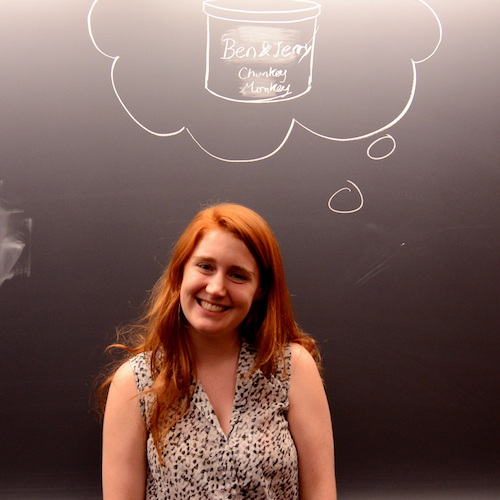 Ben & Jerry
Chunkey
Monkey